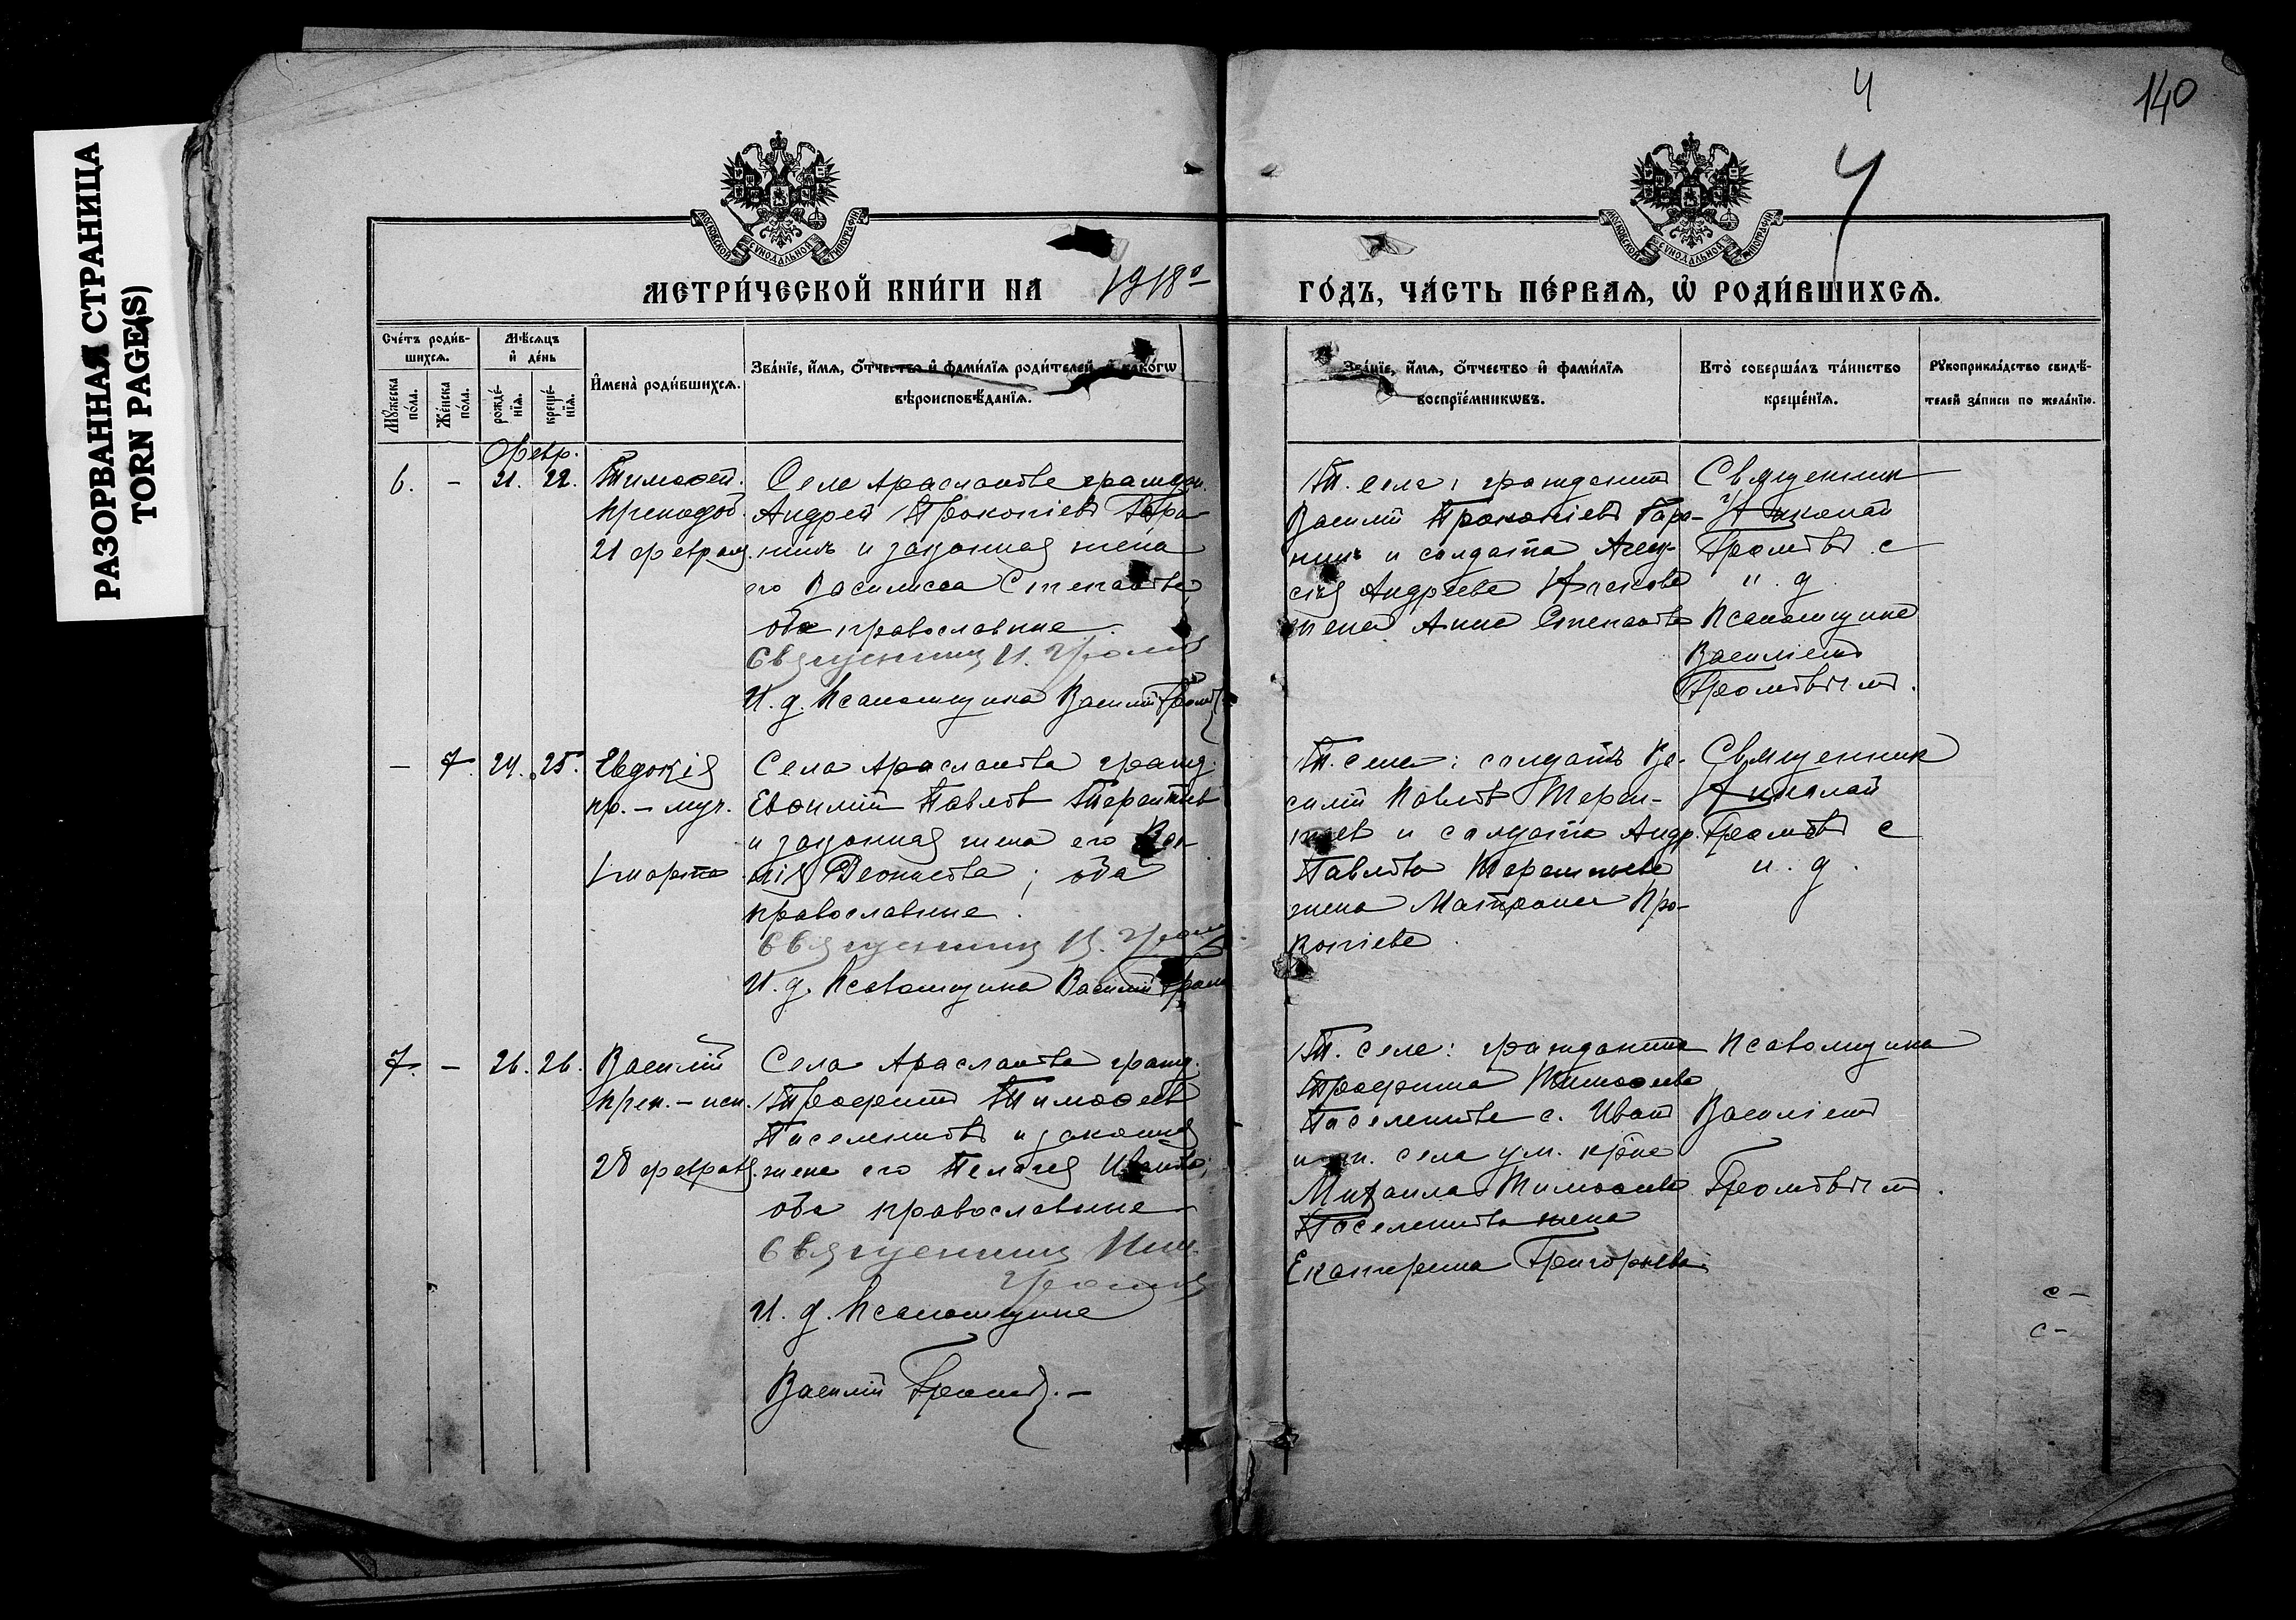 РАЗОРВАННАЯ СТРАНИЦА
TORN PAGE(S)
4
140
4
МОСКОВСКОЙ СУНОДАЛЬНОЙ ТИПОГРАФІИ
МОСКОВСКОЙ СУНОДАЛЬНОЙ ТИПОГРАФІИ
МЕТРИ́ЧЕСКОЙ КНИ́ГИ НА 1918º
ГО́ДЪ, ЧА́СТЬ ПЕ́РВАѦ, Ѡ҆ РОДИ́ВШИХСѦ.
Сче́тъ роди́в-
шихсѧ.
Мѣ́сѧцъ
и҆ де́нь
Мꙋ́жеска по́ла.
Же́нска по́ла.
рожде́-
нїѧ.
креще́-
нїѧ.
И҆мена̀ роди́вшихсѧ.
Зва́нїе, и҆́мѧ, ѻ҆́тчество и҆ фами́лїѧ роди́телей и҆ како́гѡ
вѣроисповѣ́данїѧ.
Зва́нїе, и҆́мѧ, ѻ҆́тчество и҆ фами́лїѧ
воспрїе́мникѡвъ.
Кто̀ соверша́лъ та́инство
креще́нїѧ.
Рꙋкоприкла́дство свидѣ́-
телей за́писи по жела́нїю.
Февр.
6. – 21. 22. Тимоѳей.
преподоб.
21 февраля.
Села Арасланова граждан.
Андрей Прокопіевъ Гара-
нинъ и законная жена
его Василисса Степанова
оба православные.
Священникъ Н. Громовъ
И. д. Псаломщика Василій Громовъ
Т. села: гражданинъ
Василій Прокопіевъ Гара-
нинъ и солдата Алек-
сія Андреева
жена Анна Степанова
Священник
Николай
Громовъ с
и. д.
Псаломщика
Василіемъ
Громовымъ.
– 7. 24. 25. Евдокія
пр. – муч.
1 марта
Села Арасланова гражд.
Евѳимій Павлов Терентьев
и законная жена его
Леонтьева; оба
православные.
Священникъ Н. Громовъ
И. д. Псаломщика Василій Громов
Т. села: солдатъ Ва-
силій Павлов Терен-
тьев и солдата Андр.
Павлова Терентьева
жена Матрона Про-
копіева.
Священник
Николай
Громовъ с
и. д.
7. – 26. 26. Василій
преп. – исп.
28 февраля.
Села Арасланова гражд.
Трофимъ Тимоѳеев
Поселенновъ и законная
жена его Пелагея Иванова;
оба православные
Священникъ Ник.
Громовъ
И. д. Псаломщика
Василій Громовъ. –
Т. села: гражданина
Трофима Тимоѳеева
Поселеннова с. Иванъ
и т. села ум. кр-на
Михаила Тимоѳеева
Поселеннова жена
Екатерина Григорьева.
Псаломщика
Василіемъ
Громовымъ.
с –
с –